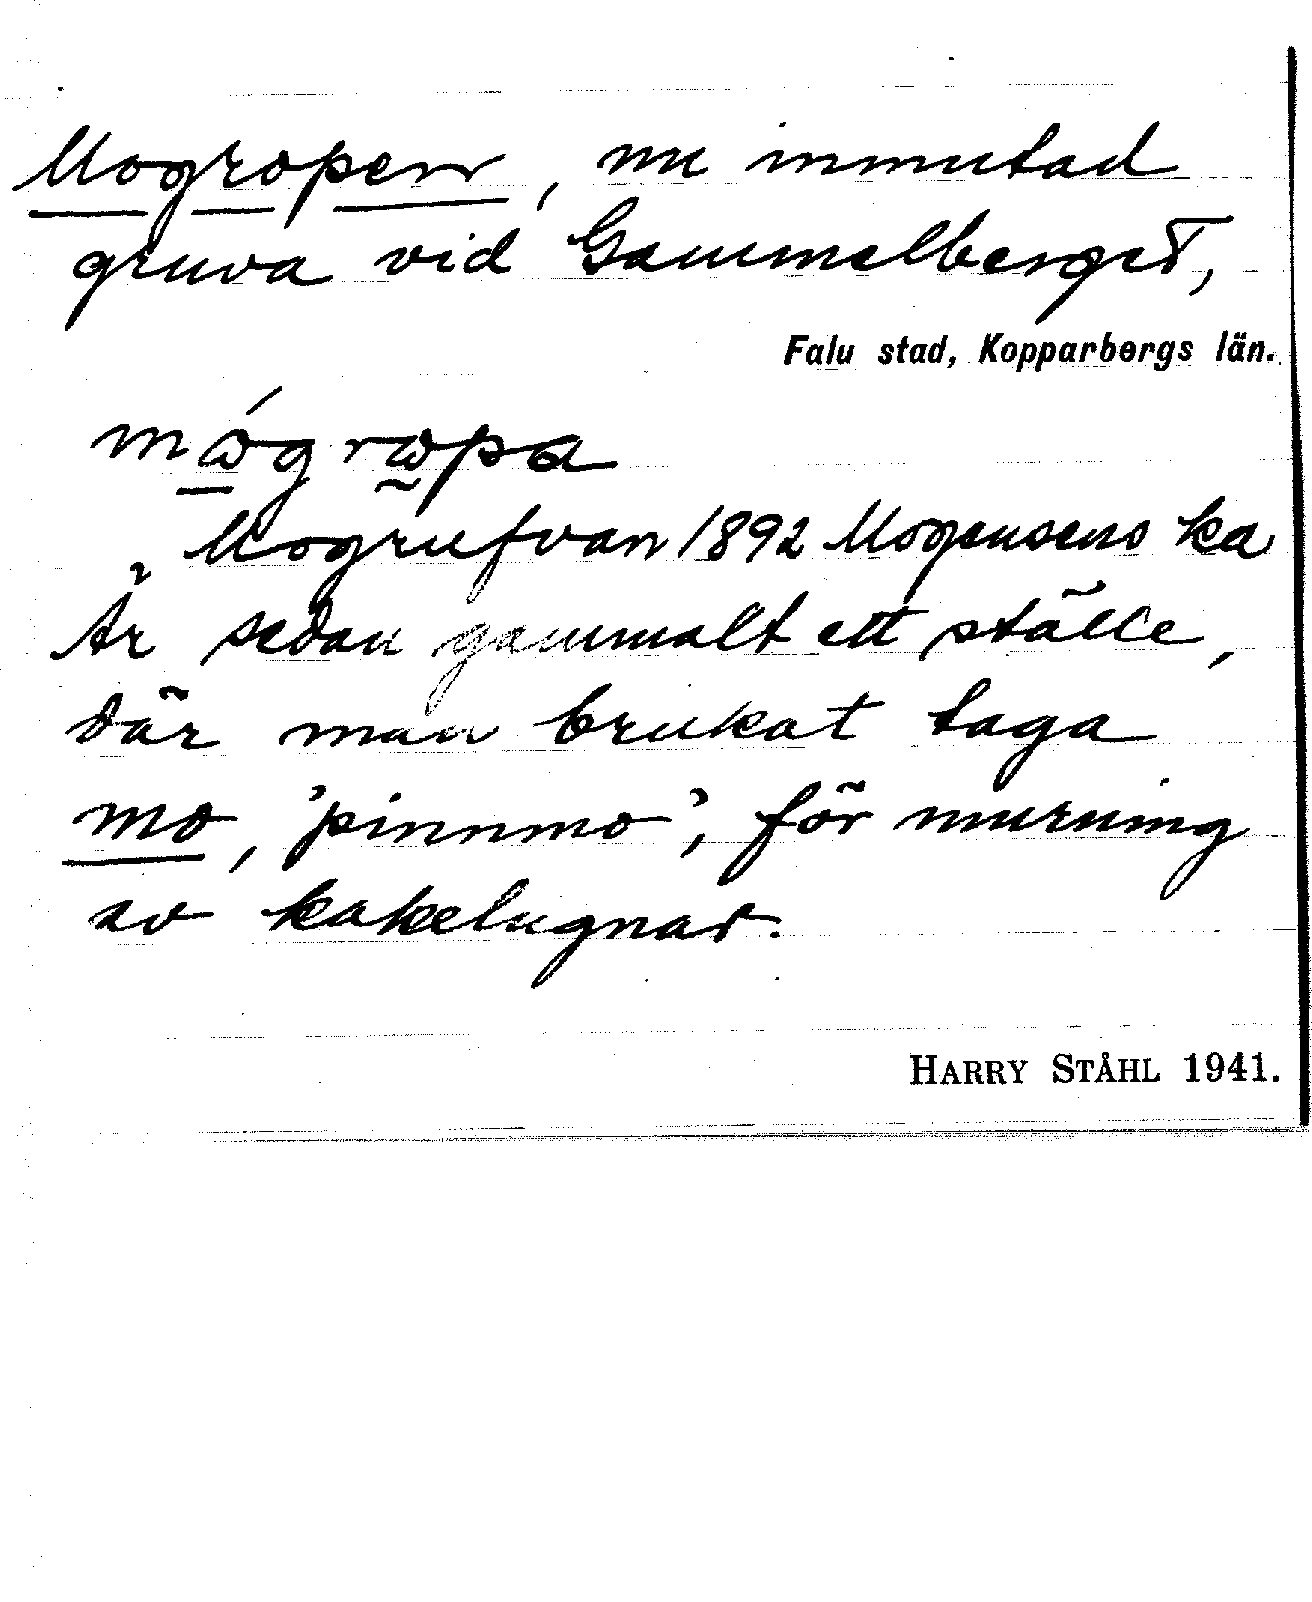 Mogropen, nu inmutad
gruva vid Gammelberget,
Falu stad, Kopparbergs län.
mǿgrωpa
Mogrufvan 1892 Mogensens ka
Är sedan gammalt ett ställe,
där man brukat taga
mo, 'pinnmo', för murning
av kakelugnar.
HARRY STÅHL 1941.